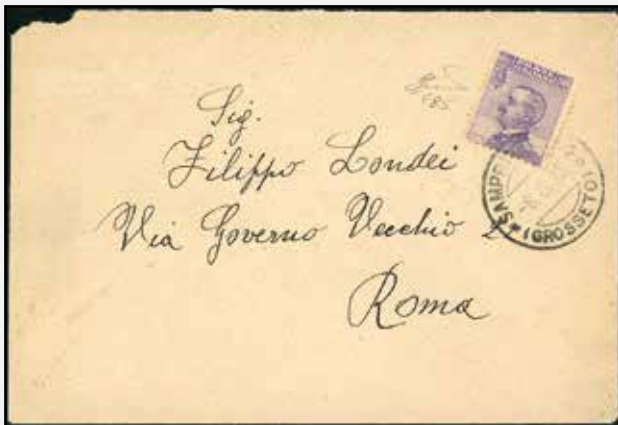 Sig.
Filippo Londei
Via Governo Vecchio
Roma
(GROSSETO)